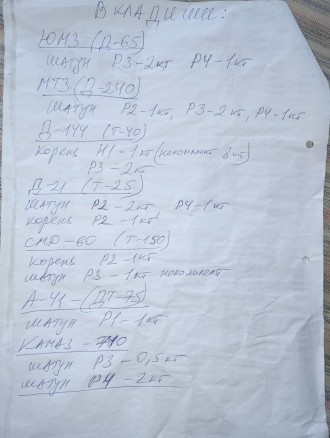 ВКЛАДИШІ:
ЮМЗ (Д-65)
шатун Р3-2кт Р4-1кт
МТЗ (Д-240)
шатун Р2-1кт, Р3-2кт, Р4-1кт
Д-144 (Т-40)
Корень Н1-1кт (некомплект 8шт)
Р3-2кт
Д-21 (Т-25)
шатун Р2-2кт Р4-1кт
корень Р2-1кт
СМД-60 (Т-150)
Корень Р2-1кт
шатун Р3-1кт некомплект
А-41-(ДТ-75)
шатун Р1-1кт
КАМАЗ-740
шатун Р3-0,5кт
шатун Р4-2кт